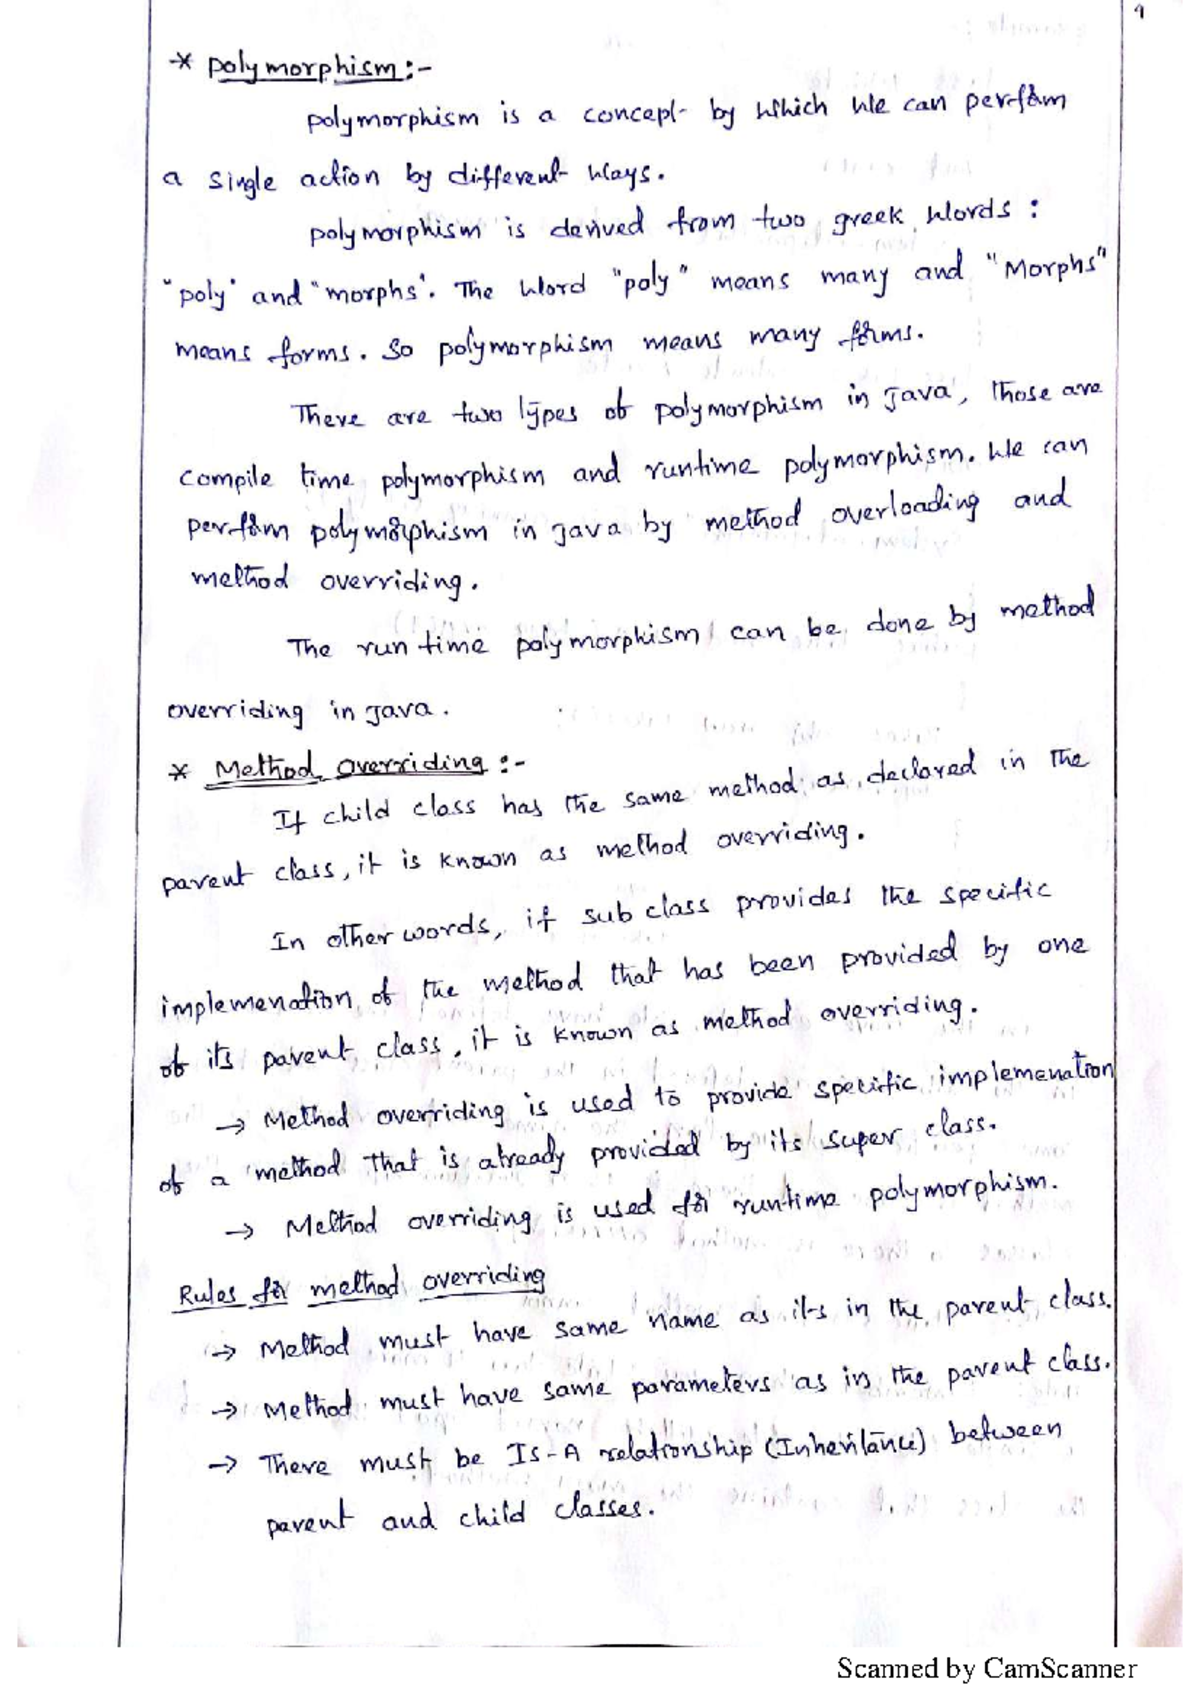 9
* polymorphism:-
polymorphism is a concept by which we can perform
a single action by different ways.
polymorphism is derived from two greek words:
"poly" and "morphs". The word "poly" means many and "Morphs"
means forms. So polymorphism means many forms.
There are two types of polymorphism in java, those are
compile time polymorphism and runtime polymorphism. We can
perform polymorphism in java by method overloading and
method overriding.
The run time polymorphism can be done by method
overriding in java.
* Method overriding :-
If child class has the same method as declared in the
parent class, it is known as method overriding.
In other words, if sub class provides the specific
implemenation of the method that has been provided by one
of its parent class, it is known as method overriding.
→ Method overriding is used to provide specific implemenation
of a method that is already provided by its super class.
→ Method overriding is used for runtime polymorphism.
Rules for method overriding
→ Method must have same name as its in the parent class.
→ Method must have same parameters as in the parent class.
→ There must be Is-A relationship (Inheritance) between
parent and child classes.
Scanned by CamScanner